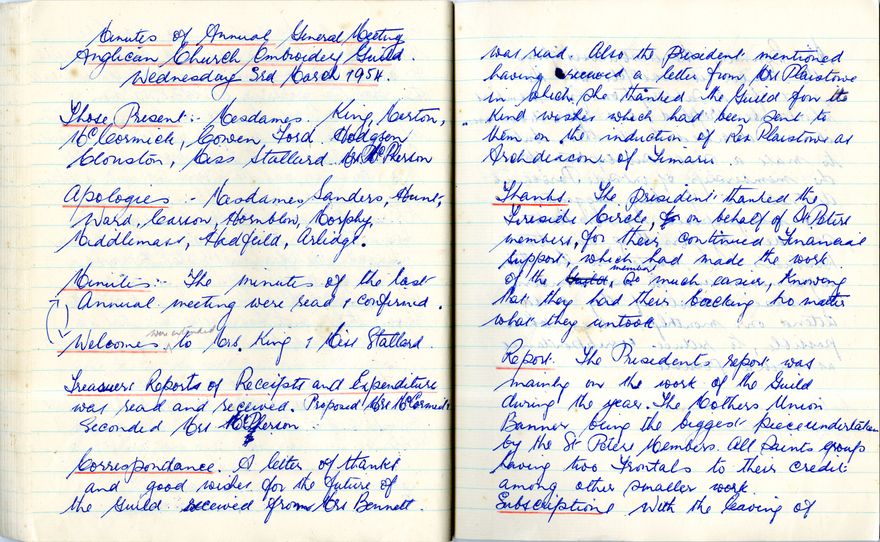 Minutes of Annual General Meeting
Anglican Church Embroidery Guild.
Wednesday 3rd March 1954.
Those Present :- Mesdames. King, Merton,
McCormick, Cowen, Ford. Hodgson
Clouston, Miss Stallard. Mrs McPherson
Apologies :- Mesdames, Sanders, Hunt,
Ward, Carson, Hornblow, Morphy,
Middlemass, Hadfield, Arlidge.
Minutes :- The minutes of the last
Annual meeting were read & confirmed.
were extended
Welcomes, to Mrs. King & Miss Stallard.
Treasurers Reports of Receipts and Expenditure
was read and received. Proposed Mrs McCormick
Seconded Mrs McPherson
Correspondance. A letter of thanks
and good wishes for the future of
the Guild received from Mrs Bennett.
was read. Also the President mentioned
having received a letter from Mrs Plaistowe
in which she thanked the Guild for its
kind wishes which had been sent to
them on the induction of Rev Plaistowe as
Archdeacon of Timaru
Thanks. The President thanked the
Fireside Circle, on behalf of St Peters
members, for their continued Financial
support, which had made the work
of the member, so much easier, knowing
that they had their backing no matter
what they untook.
Report. The Presidents report was
mainly on the work of the Guild
during the year. The Mothers Union
Banner being the biggest piece undertaken
by the St Peters Members. All Saints group
having two Frontals to their credit
among other smaller work.
Subscriptions With the leaving of